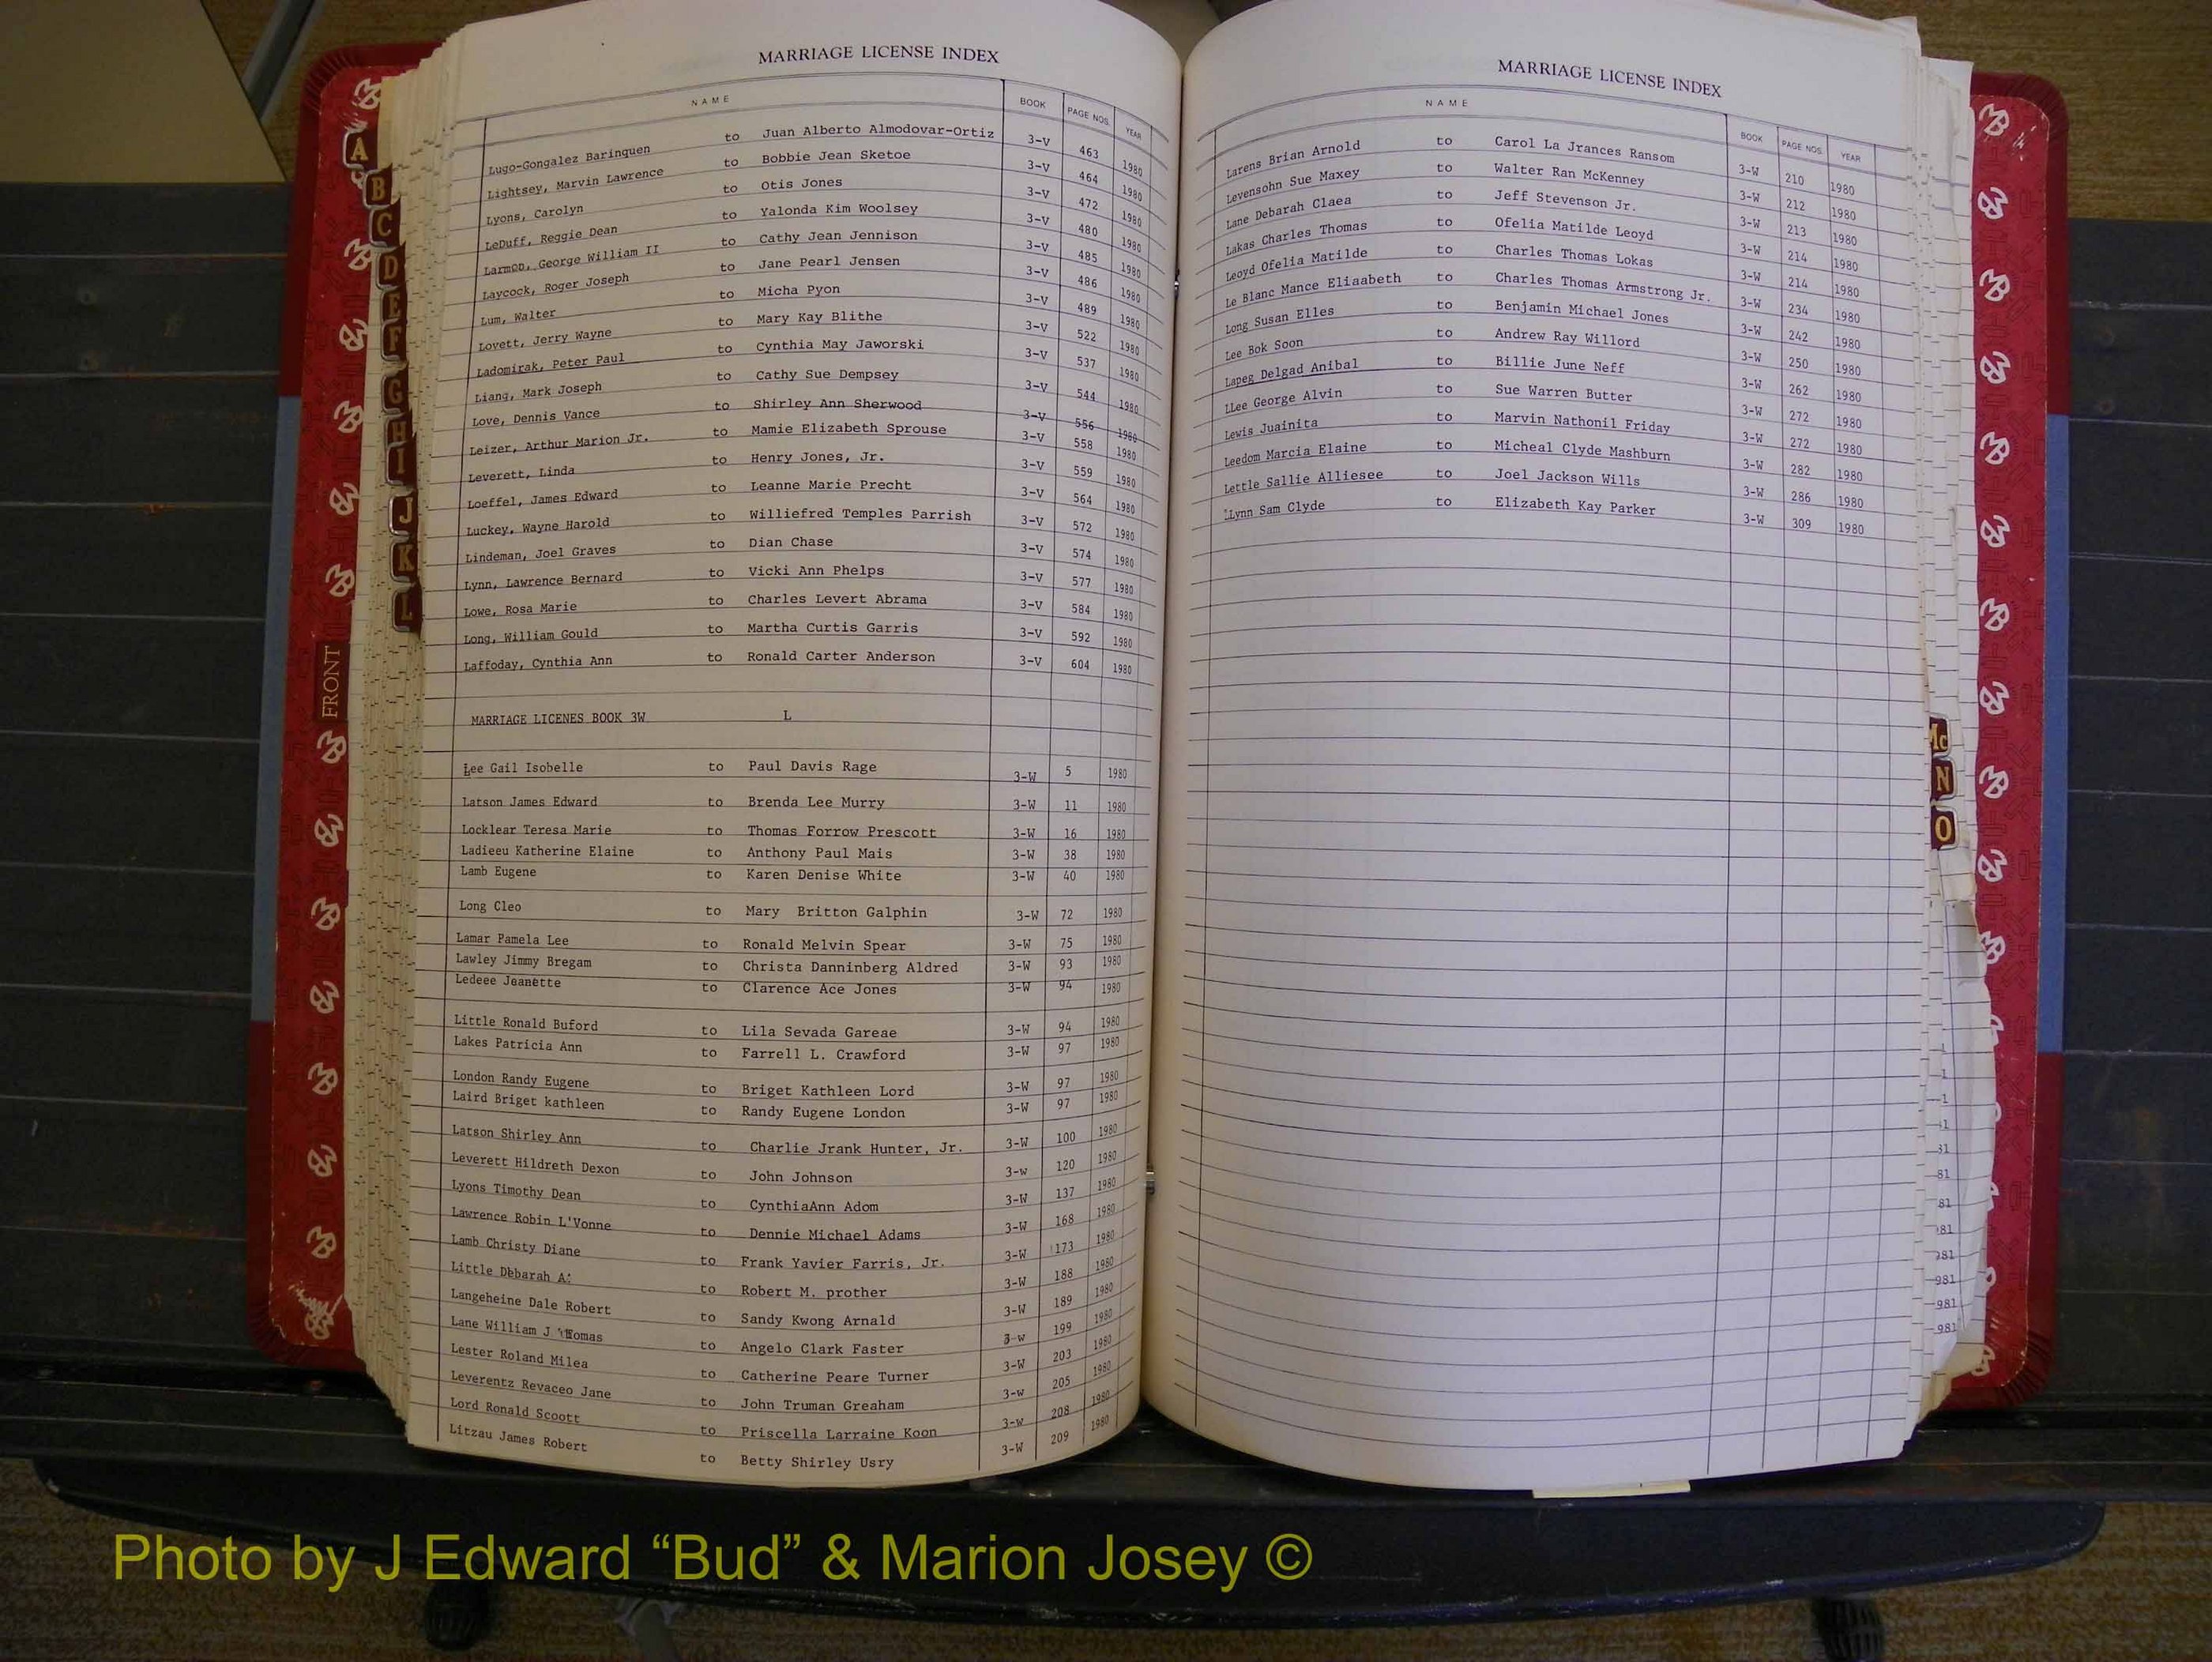 MARRIAGE LICENSE INDEX
NAME BOOK PAGE NOS. YEAR
Lugo-Gongalez Barinquen to Juan Alberto Almodovar-Ortiz 3-V 463 1980
Lightsey, Marvin Lawrence to Bobbie Jean Sketoe 3-V 464 1980
Lyons, Carolyn to Otis Jones 3-V 472 1980
LeDuff, Reggie Dean to Yalonda Kim Woolsey 3-V 480 1980
Larmon, George William II to Cathy Jean Jennison 3-V 485 1980
Laycock, Roger Joseph to Jane Pearl Jensen 3-V 486 1980
Lum, Walter to Micha Pyon 3-V 489 1980
Lovett, Jerry Wayne to Mary Kay Blithe 3-V 522 1980
Ladomirak, Peter Paul to Cynthia May Jaworski 3-V 537 1980
Liang, Mark Joseph to Cathy Sue Dempsey 3-V 544 1980
Love, Dennis Vance to Shirley Ann Sherwood 3-V 556 1980
Leizer, Arthur Marion Jr. to Mamie Elizabeth Sprouse 3-V 558 1980
Leverett, Linda to Henry Jones, Jr. 3-V 559 1980
Loeffel, James Edward to Leanne Marie Precht 3-V 564 1980
Luckey, Wayne Harold to Williefred Temples Parrish 3-V 572 1980
Lindeman, Joel Graves to Dian Chase 3-V 574 1980
Lynn, Lawrence Bernard to Vicki Ann Phelps 3-V 577 1980
Lowe, Rosa Marie to Charles Levert Abrama 3-V 584 1980
Long, William Gould to Martha Curtis Garris 3-V 592 1980
Laffoday, Cynthia Ann to Ronald Carter Anderson 3-V 604 1980
MARRIAGE LICENES BOOK 3W L
Lee Gail Isobelle to Paul Davis Rage 3-W 5 1980
Latson James Edward to Brenda Lee Murry 3-W 11 1980
Locklear Teresa Marie to Thomas Forrow Prescott 3-W 16 1980
Ladieeu Katherine Elaine to Anthony Paul Mais 3-W 38 1980
Lamb Eugene to Karen Denise White 3-W 40 1980
Long Cleo to Mary Britton Galphin 3-W 72 1980
Lamar Pamela Lee to Ronald Melvin Spear 3-W 75 1980
Lawley Jimmy Bregam to Christa Danninberg Aldred 3-W 93 1980
Ledeee Jeanette to Clarence Ace Jones 3-W 94 1980
Little Ronald Buford to Lila Sevada Gareae 3-W 94 1980
Lakes Patricia Ann to Farrell L. Crawford 3-W 97 1980
London Randy Eugene to Briget Kathleen Lord 3-W 97 1980
Laird Briget kathleen to Randy Eugene London 3-W 97 1980
Latson Shirley Ann to Charlie Jrank Hunter, Jr. 3-W 100 1980
Leverett Hildreth Dexon to John Johnson 3-w 120 1980
Lyons Timothy Dean to CynthiaAnn Adom 3-W 137 1980
Lawrence Robin L'Vonne to Dennie Michael Adams 3-W 168 1980
Lamb Christy Diane to Frank Yavier Farris, Jr. 3-W 173 1980
Little Debarah A. to Robert M. prother 3-W 188 1980
Langeheine Dale Robert to Sandy Kwong Arnald 3-W 189 1980
Lane William J Thomas to Angelo Clark Faster 3-w 199 1980
Lester Roland Milea to Catherine Peare Turner 3-W 203 1980
Leverentz Revaceo Jane to John Truman Greaham 3-w 205 1980
Lord Ronald Scoott to Priscella Larraine Koon 3-w 208 1980
Litzau James Robert to Betty Shirley Usry 3-W 209 1980
MARRIAGE LICENSE INDEX
NAME BOOK PAGE NOS. YEAR
Larens Brian Arnold to Carol La Jrances Ransom 3-W 210 1980
Levensohn Sue Maxey to Walter Ran McKenney 3-W 212 1980
Lane Debarah Claea to Jeff Stevenson Jr. 3-W 213 1980
Lakas Charles Thomas to Ofelia Matilde Leoyd 3-W 214 1980
Leoyd Ofelia Matilde to Charles Thomas Lokas 3-W 214 1980
Le Blanc Mance Eliaabeth to Charles Thomas Armstrong Jr. 3-W 234 1980
Long Susan Elles to Benjamin Michael Jones 3-W 242 1980
Lee Bok Soon to Andrew Ray Willord 3-W 250 1980
Lapeg Delgad Anibal to Billie June Neff 3-W 262 1980
LLee George Alvin to Sue Warren Butter 3-W 272 1980
Lewis Juainita to Marvin Nathonil Friday 3-W 272 1980
Leedom Marcia Elaine to Micheal Clyde Mashburn 3-W 282 1980
Lettle Sallie Alliesee to Joel Jackson Wills 3-W 286 1980
Lynn Sam Clyde to Elizabeth Kay Parker 3-W 309 1980
A
B
C
D
E
F
G
H
I
J
K
L
FRONT
Mc
N
O
1
1
1
81
81
81
81
81
981
981
981
Photo by J Edward “Bud” & Marion Josey ©